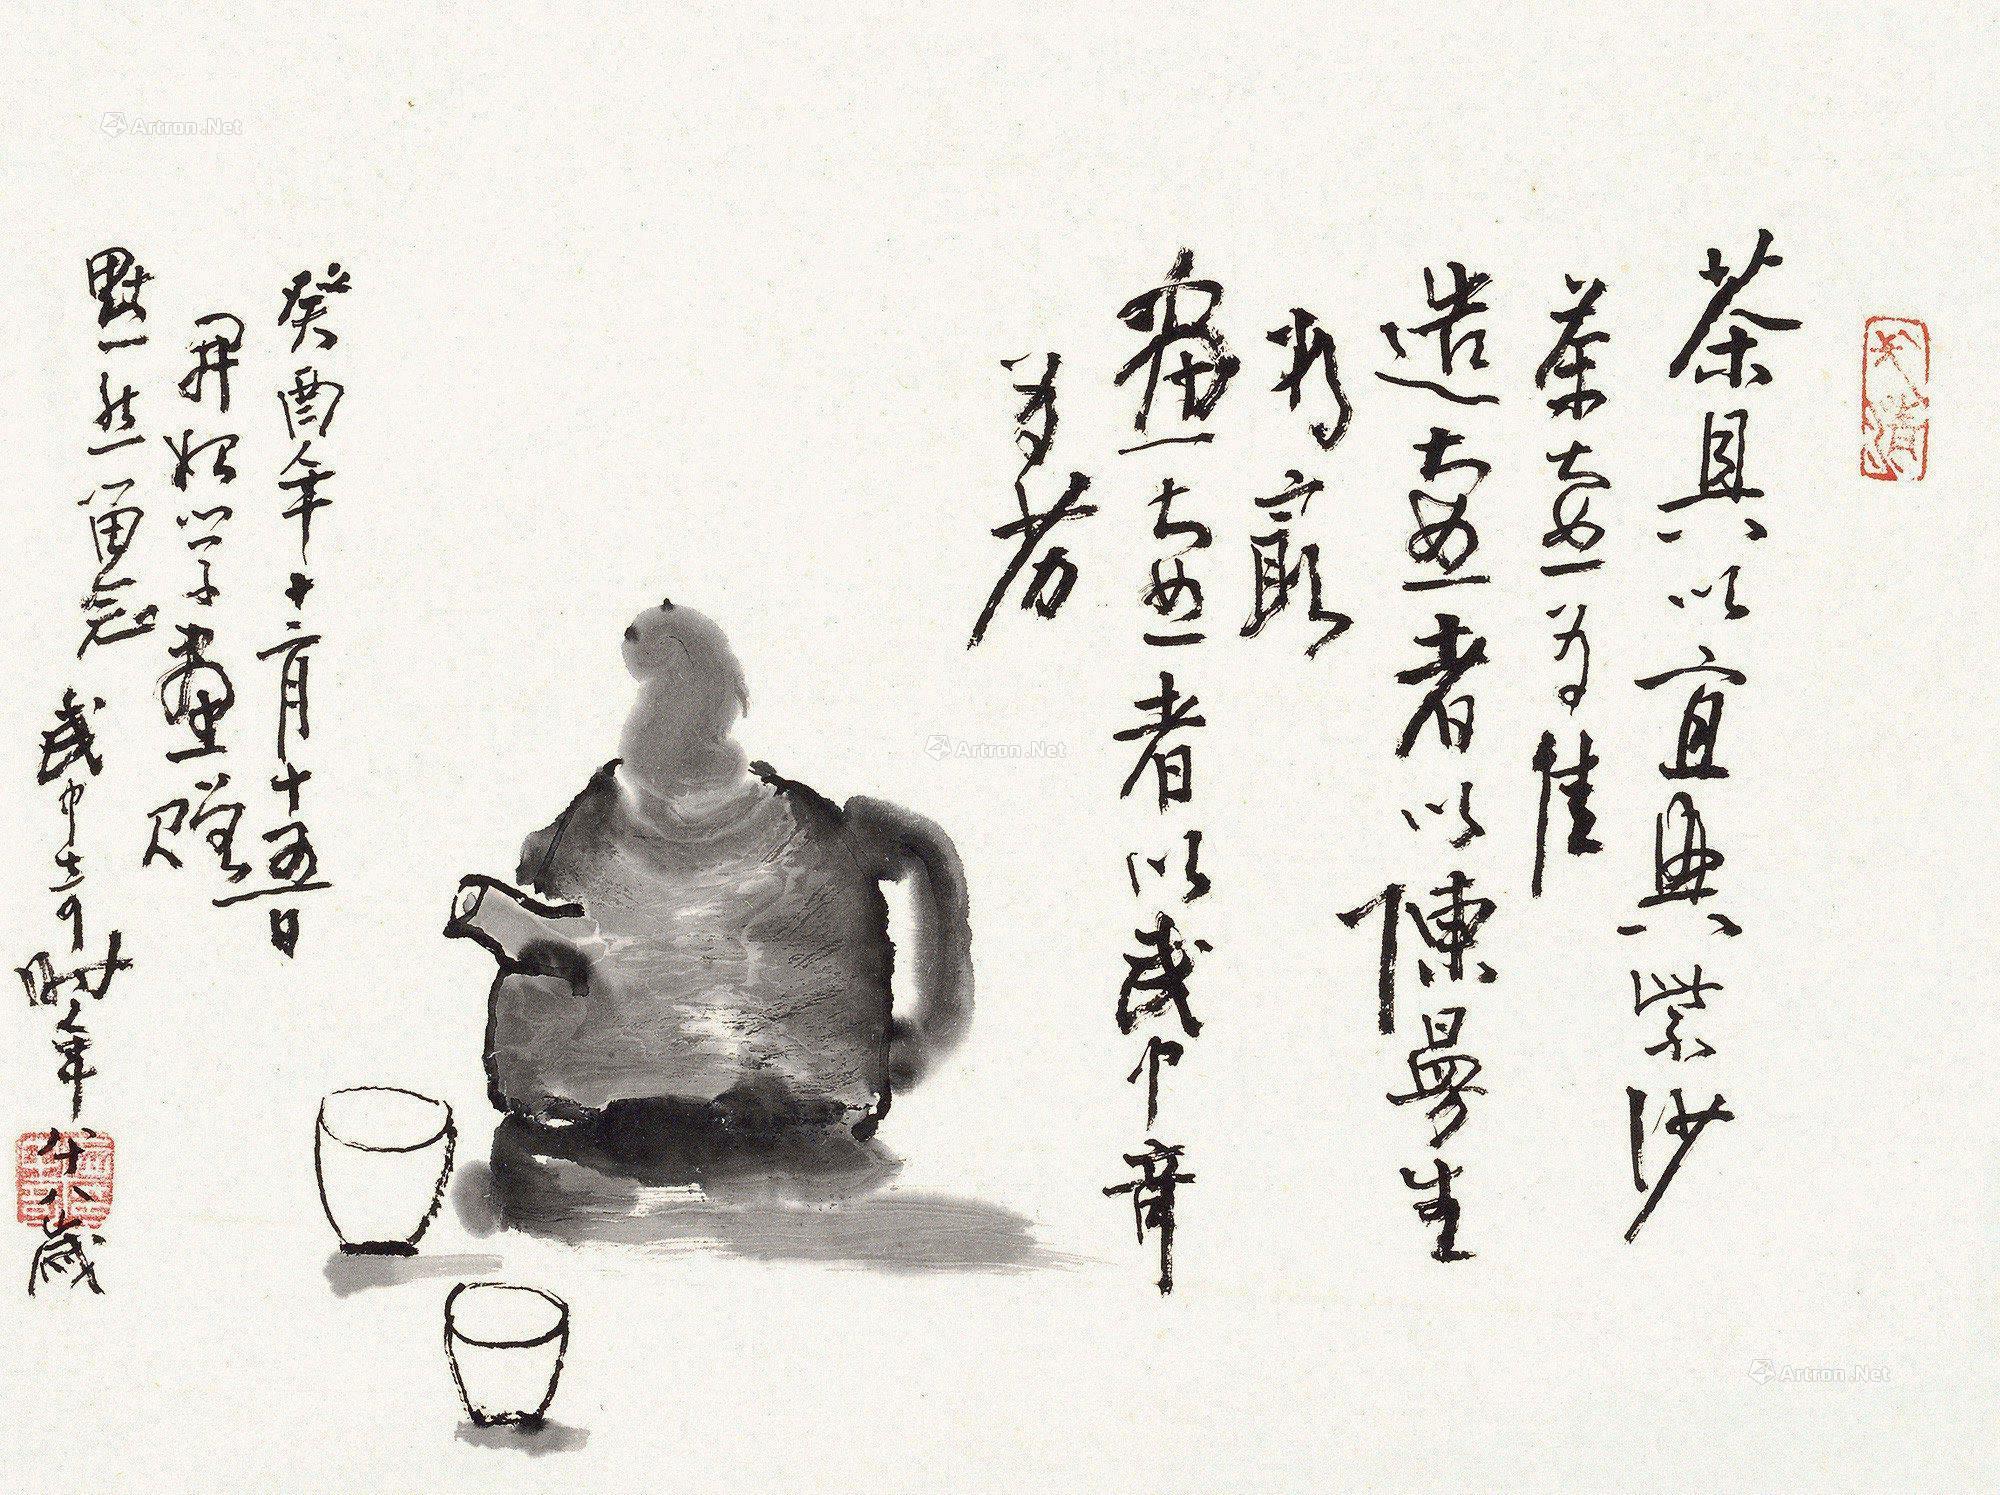 茶具以宜興紫沙
茶壺為佳
造壺者以陳曼生
最
畫壺者以武中竒
為劣
癸酉年十二月十五日
開始學畫贈
黙然留念 武中竒時年八十八歲
Artron.Net
Artron.Net
Artron.Net